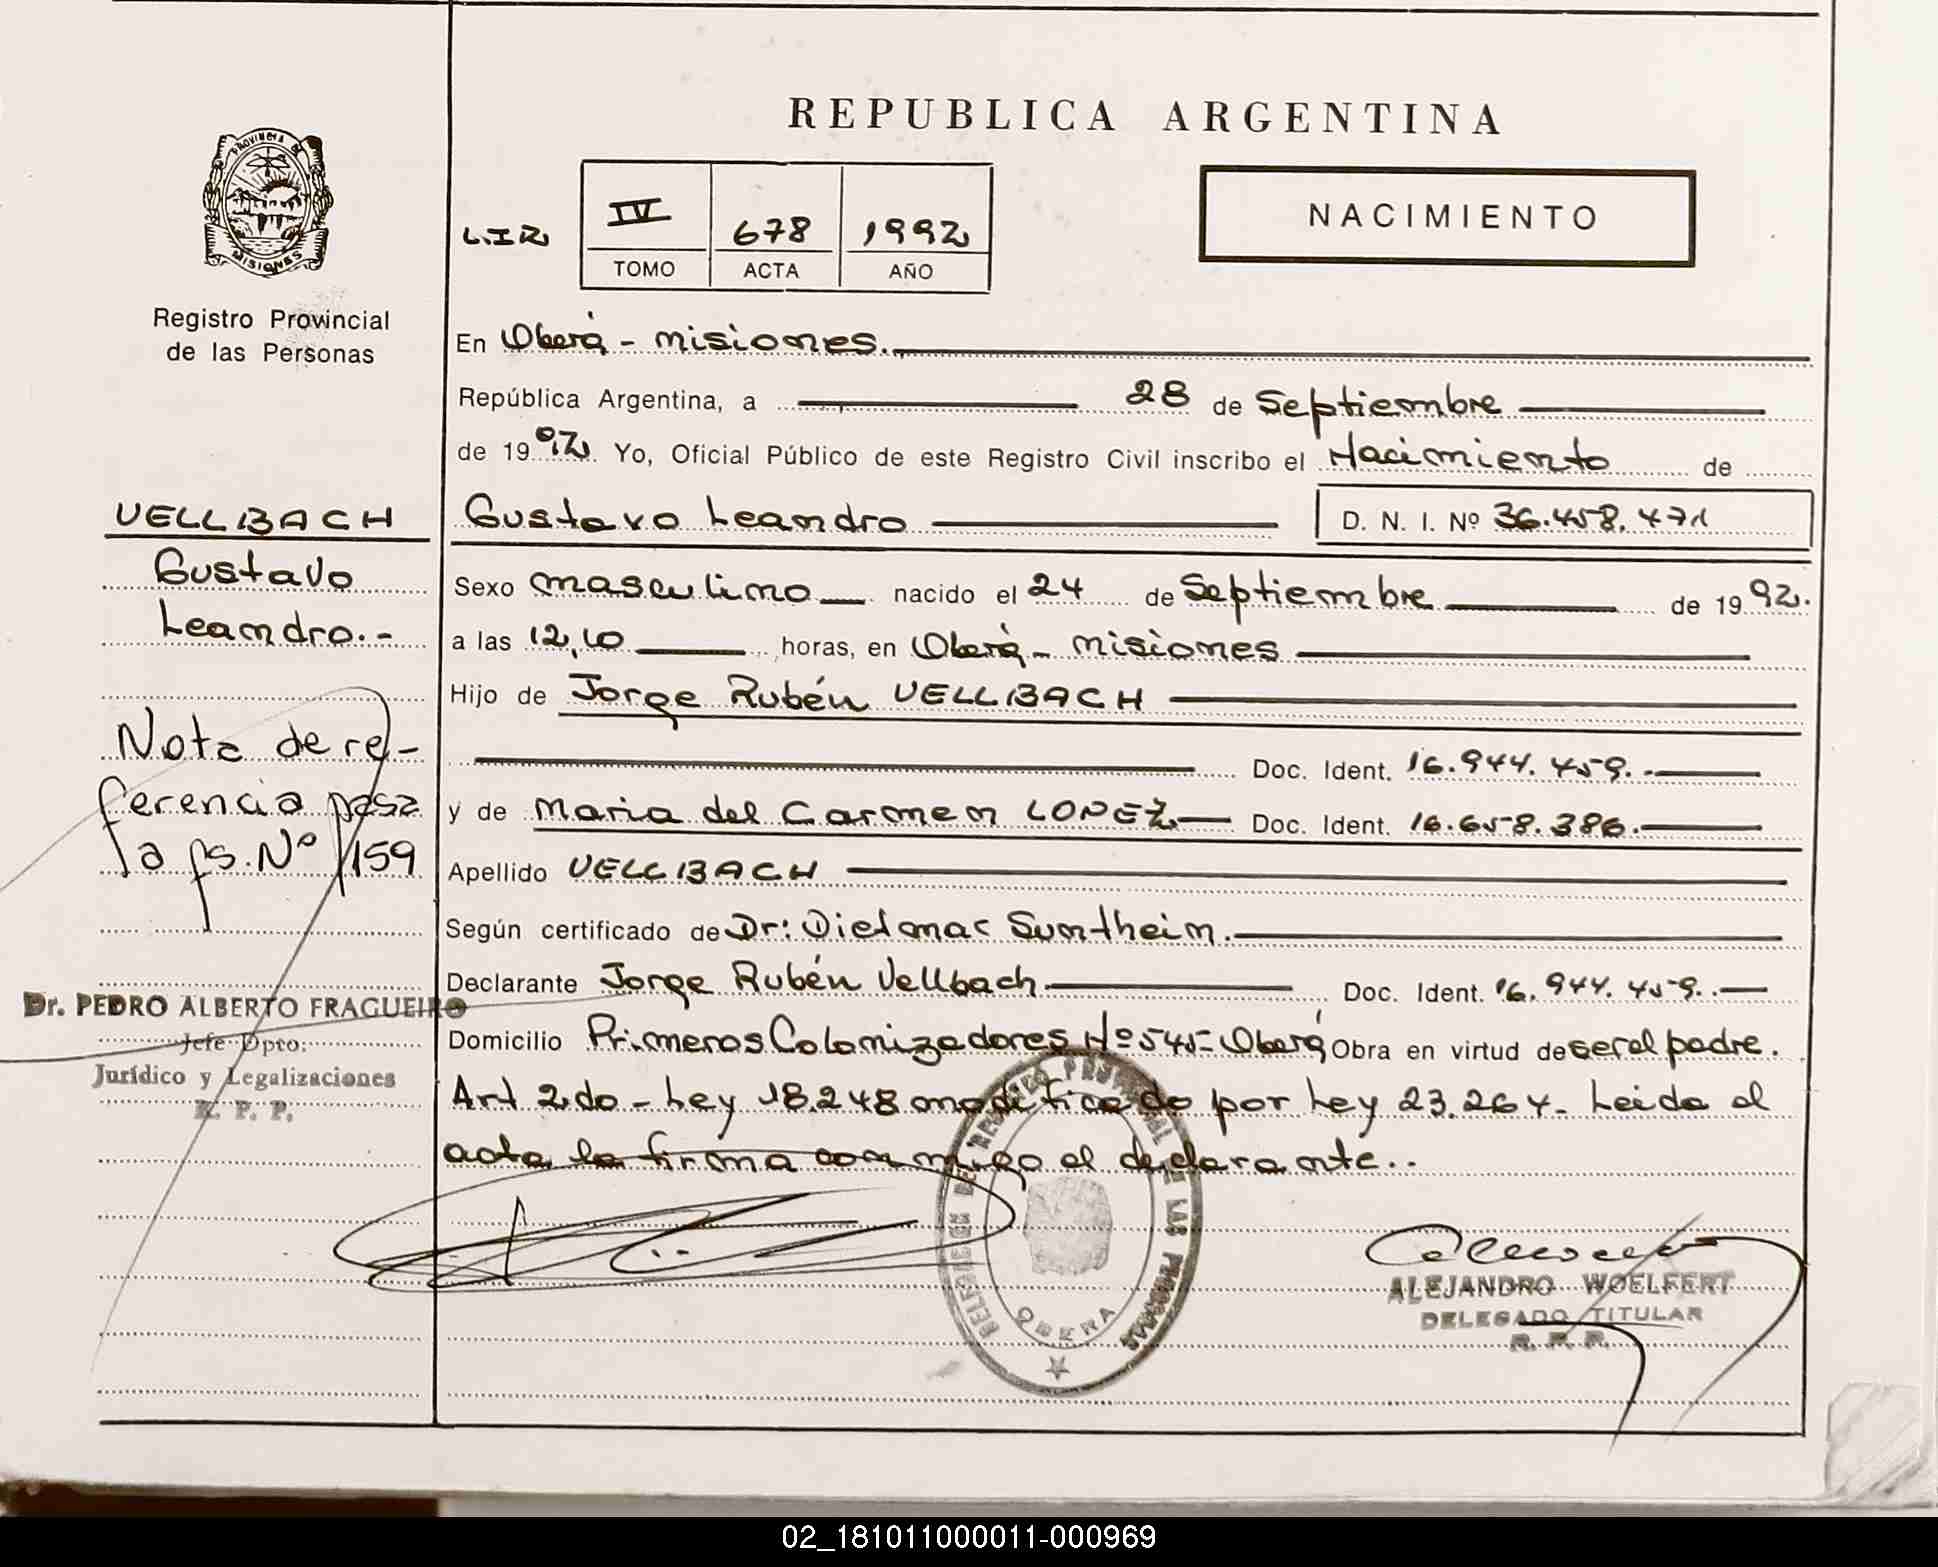 REPUBLICA ARGENTINA
PROVINCIA DE
MISIONES
Registro Provincial
de las Personas
L.I.R
IV 678 1992
TOMO ACTA AÑO
NACIMIENTO
En Oberá - misiones.
República Argentina, a 28 de Septiembre
de 1992 Yo, Oficial Público de este Registro Civil inscribo el Nacimiento de
Gustavo Leandro D. N. I. Nº 36.458.471
Sexo masculino nacido el 24 de Septiembre de 1992.
a las 12,10 horas, en Oberá - misiones
Hijo de Jorge Rubén VELLBACH
Doc. Ident. 16.944.459.
y de Maria del Carmen LOPEZ Doc. Ident. 16.658.386.
Apellido VELLBACH
Según certificado de Dr: Dietmar Suntheim.
Declarante Jorge Rubén Vellbach Doc. Ident. 16.944.459.
Domicilio Primeros Colonizadores Nº 545- Oberá Obra en virtud de ser el padre.
Art 2do - Ley 18.248 modificado por Ley 23.264. Leida el
acta la firma conmigo el declarante..
VELLBACH
Gustavo
Leandro.-
Nota de re-
ferencia pasa
a fs. Nº 159
Dr. PEDRO ALBERTO FRAGUEIRO
Jefe Dpto.
Jurídico y Legalizaciones
R. P. P.
DELEGACION DEL REGISTRO PROVINCIAL DE LAS PERSONAS
OBERA
ALEJANDRO WOELFERT
DELEGADO TITULAR
R. P. P.
02_181011000011-000969